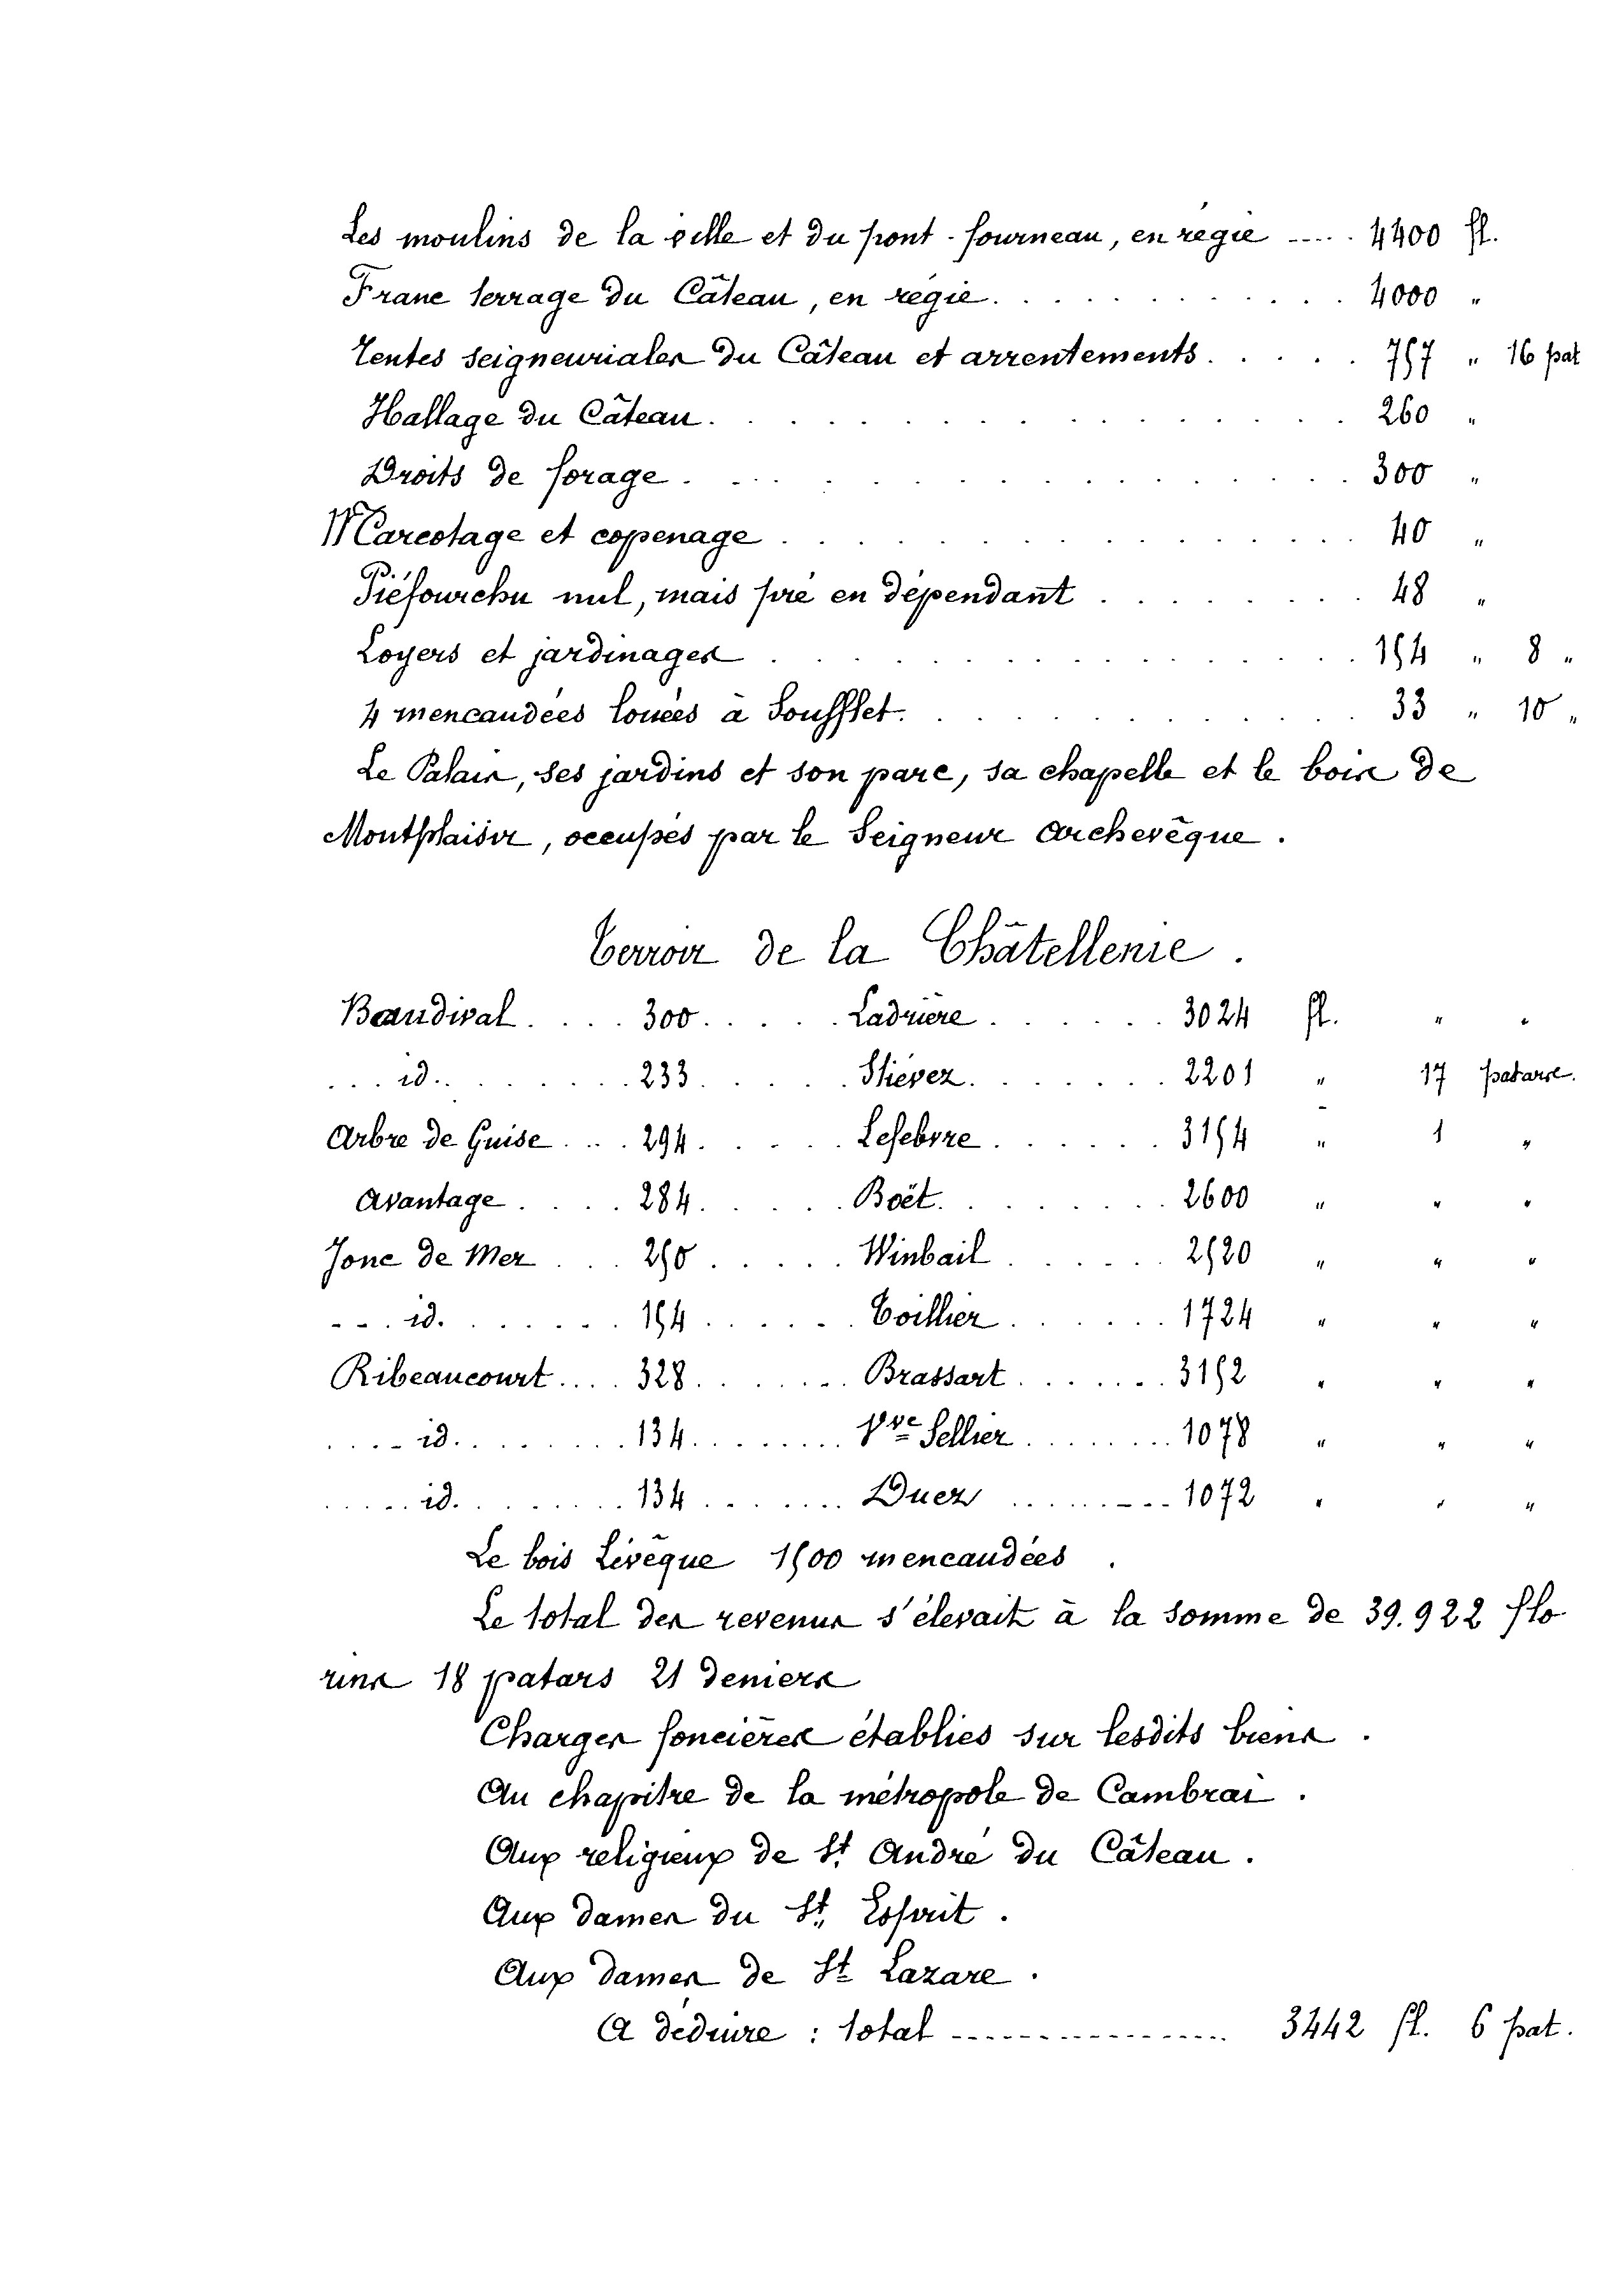 Les moulins de la ville et du pont-fourneau, en régie ..... 4400 fl.
Franc terrage du Câteau, en régie. . . . . . . . . . . . 4000 "
Rentes seigneuriales du Câteau et arrentements. . . . . 757 " 16 pat
Hallage du Câteau. . . . . . . . . . . . . . . . 260 "
Droits de forage . . . . . . . . . . . . . . . . 300 "
Marcotage et copenage . . . . . . . . . . . . . . 40 "
Piéfourchu nul, mais pré en dépendant . . . . . . . . 48 "
Loyers et jardinages . . . . . . . . . . . . . . 154 " 8 "
4 mencaudées louées à Soufflet. . . . . . . . . . . 33 " 10 "
Le Palais, ses jardins et son parc, sa chapelle et le bois de
Montplaisir, occupés par le Seigneur Archevêque .
Terroir de la Châtellenie .
Baudival . . . . 300 . . . . . Ladrière . . . . . . 3024 fl. " "
. . . id. . . . . . . . 233 . . . . . Stiévez . . . . . . . 2201 " 17 patars.
Arbre de Guise . . . 294 . . . . . Lefebvre . . . . . . 3154 " 1 "
Avantage . . . . 284 . . . . . Boët. . . . . . . . 2600 " " "
Jonc de Mer . . . 250 . . . . . Winbail . . . . . . 2520 " " "
- - . id. . . . . . . 154 . . . . . . Toillier . . . . . . 1724 " " "
Ribeaucourt . . . . 328 . . . . . . . Brassart . . . . . . 3152 " " "
. . . . id. . . . . . . . 134 . . . . . . . Vve Sellier . . . . . . . . 1078 " " "
. . . . . id. . . . . . . . 134 . . . . . . . Duez . . . . . . . . . 1072 " " "
Le bois Lévêque 1500 mencaudées .
Le total des revenus s'élevait à la somme de 39.922 flo
rins 18 patars 21 deniers
Charges foncières établies sur lesdits biens .
Au chapitre de la métropole de Cambrai .
Aux religieux de St André du Câteau .
Aux dames du St Esprit .
Aux dames de St Lazare .
A déduire : total ---------------- 3442 fl. 6 pat.